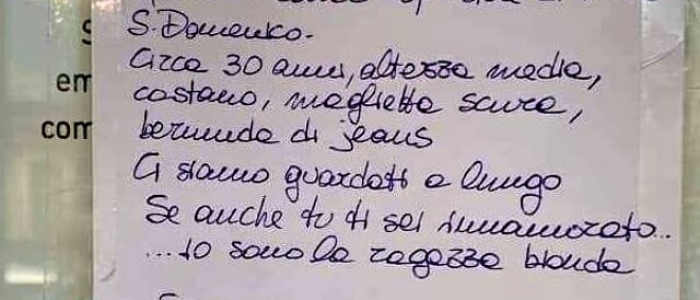 S. Domenico.
Circa 30 anni, altezza media,
castano, maglietta scura,
bermuda di jeans
Ci siamo guardati a lungo
Se anche tu ti sei innamorato...
...io sono la ragazza bionda
em
com